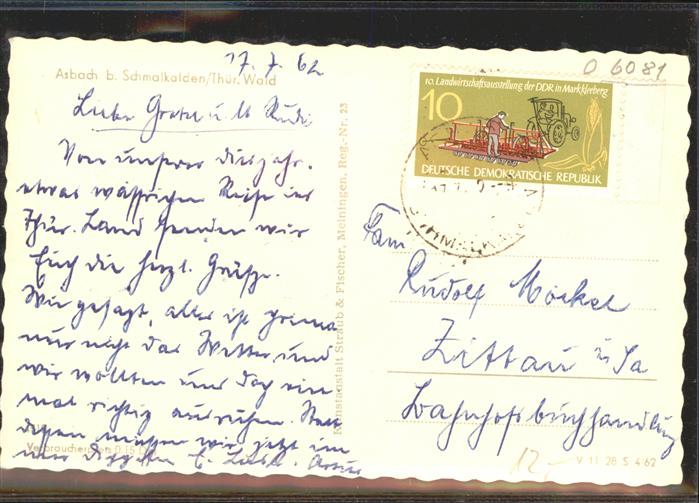 17.7.62
Asbach b. Schmalkalden/Thür. Wald
Liebe Grete u. lb. Rudi
Von unserer diesjähr.
etwas wässrigen Reise ins
Thür. Land senden wir
Euch die herzl. Grüße.
Wie gesagt, alles ist prima
nur nicht das Wetter, und
wir wollten uns doch ein
mal richtig ausruhen. Statt
dessen müssen wir jetzt im
mer
Verbraucherpreis 0,15 DM
Kunstanstalt Straub & Fischer, Meiningen, Reg.-Nr. 23
0 6081
10. Landwirtschaftsausstellung der DDR in Markkleeberg
10
DEUTSCHE DEMOKRATISCHE REPUBLIK
Fam
Rudolf Möckel
Zittau i. Sa
Bahnhofsbuchhandlung
12,-
V 11 28 S 4/62